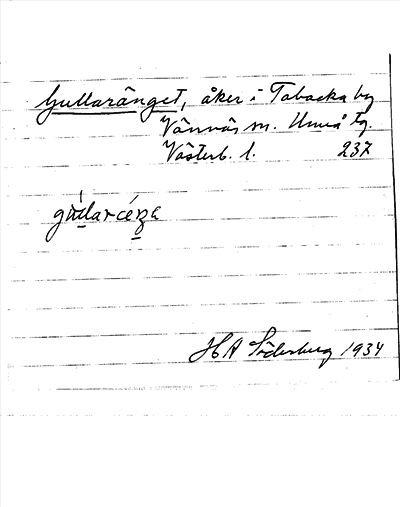 Gullaränget, åker i Tabacka by
Vännäs sn. Umeå tg.
Västerb. l. 237
H A Söderberg 1934